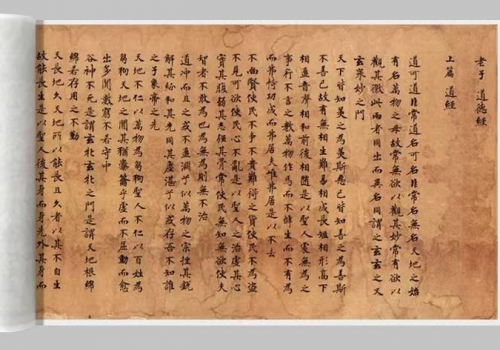 老子 道德經
上篇 道經
道可道非常道名可名非常名無名天地之始
有名萬物之母故常無欲以觀其妙常有欲以
觀其徼此兩者同出而異名同謂之玄玄之又
玄眾妙之門
天下皆知美之為美斯惡已皆知善之為善斯
不善已故有無相生難易相成長短相形高下
相盈音聲相和前後相隨是以聖人處無為之
事行不言之教萬物作焉而不辭生而不有為
而弗恃功成而弗居夫唯弗居是以不去
不尚賢使民不爭不貴難得之貨使民不為盜
不見可欲使民心不亂是以聖人之治虛其心
實其腹弱其志強其骨常使民無知無欲使夫
智者不敢為也為無為則無不治
道沖而用之或不盈淵乎似萬物之宗挫其銳
解其紛和其光同其塵湛乎似或存吾不知誰
之子象帝之先
天地不仁以萬物為芻狗聖人不仁以百姓為
芻狗天地之間其猶橐籥乎虛而不屈動而愈
出多聞數窮不若守中
谷神不死是謂玄牝玄牝之門是謂天地根綿
綿若存用之不勤
天長地久天地所以能長且久者以其不自生
故能長生是以聖人後其身而身先外其身而